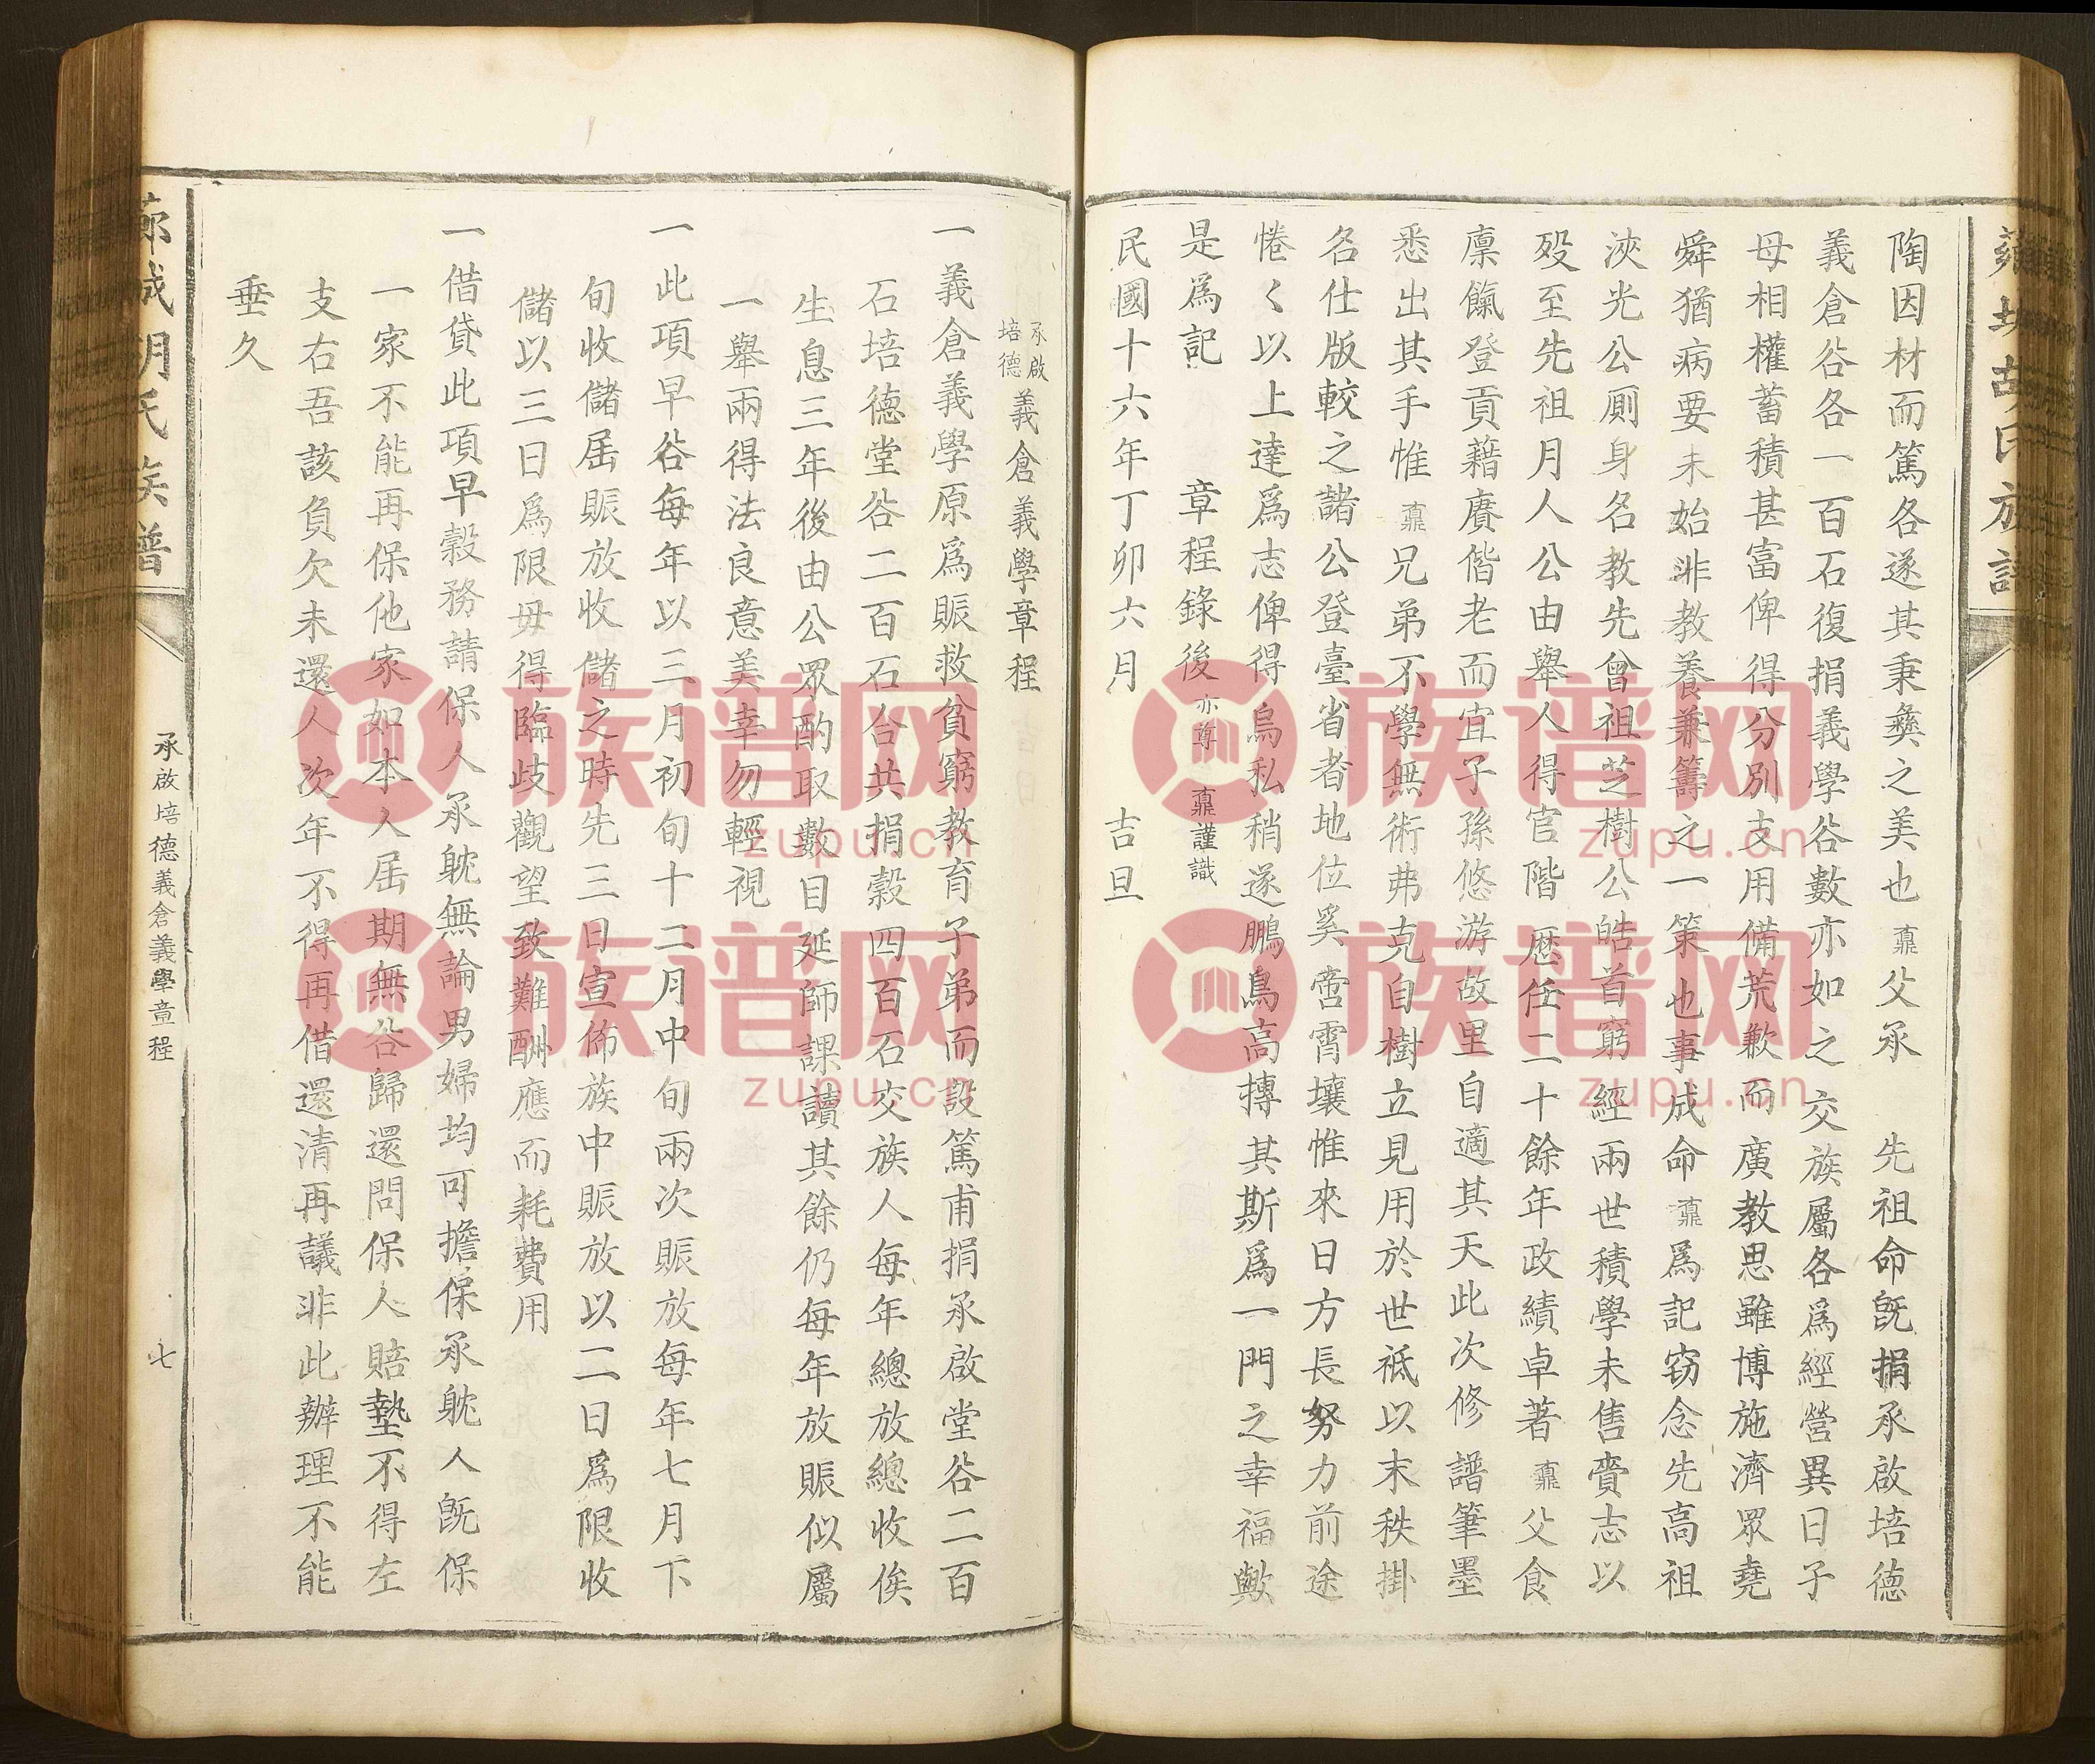 陶因材而篤各遂其秉彝之美也鼐父承 先祖命旣捐承啟培德
義倉谷各一百石復捐義學谷數亦如之交族屬各爲經營異日子
母相權蓄積甚富俾得分別支用備荒歉而廣教思雖博施濟眾堯
舜猶病要未始非教養兼籌之一策也事成命鼐爲記窃念先高祖
浹光公厠身名教先曾祖芝樹公皓首窮經兩世積學未售賫志以
歿至先祖月人公由舉人得官階歷任二十餘年政績卓著鼐父食
廪餼登貢藉賡偕老而宜子孫悠游故里自適其天此次修譜筆墨
悉出其手惟鼐兄弟不學無術弗克自樹立見用於世祗以末秩掛
名仕版較之諸公登臺省者地位奚啻霄壤惟來日方長努力前途
惓々以上達爲志俾得烏私稍遂鵬鳥高摶其斯爲一門之幸福歟
是爲記 章程錄後 亦尊 鼐謹識
民國十六年丁卯六月 吉旦
胡氏族譜
承啟
培德
義倉義學章程
一義倉義學原爲賑救貧窮教育子弟而設篤甫捐承啟堂谷二百
石培德堂谷二百石合共捐穀四百石交族人每年總放總收俟
生息三年後由公眾酌取數目延師課讀其餘仍每年放賑似屬
一舉兩得法良意美幸勿輕視
一此項早谷每年以三月初旬十二月中旬兩次賑放每年七月下
旬收儲屆賑放收儲之時先三日宣佈族中賑放以二日爲限收
儲以三日爲限毋得臨歧觀望致難酬應而耗費用
一借貸此項早穀務請保人承躭無論男婦均可擔保承躭人旣保
一家不能再保他家如本人屆期無谷歸還問保人賠墊不得左
支右吾該負欠未還人次年不得再借還清再議非此辦理不能
垂久
城胡氏族譜
承啟培德義倉義學章程
七
族谱网
zupu.cn
族谱网
zupu.cn
族谱网
zupu.cn
族谱网
zupu.cn